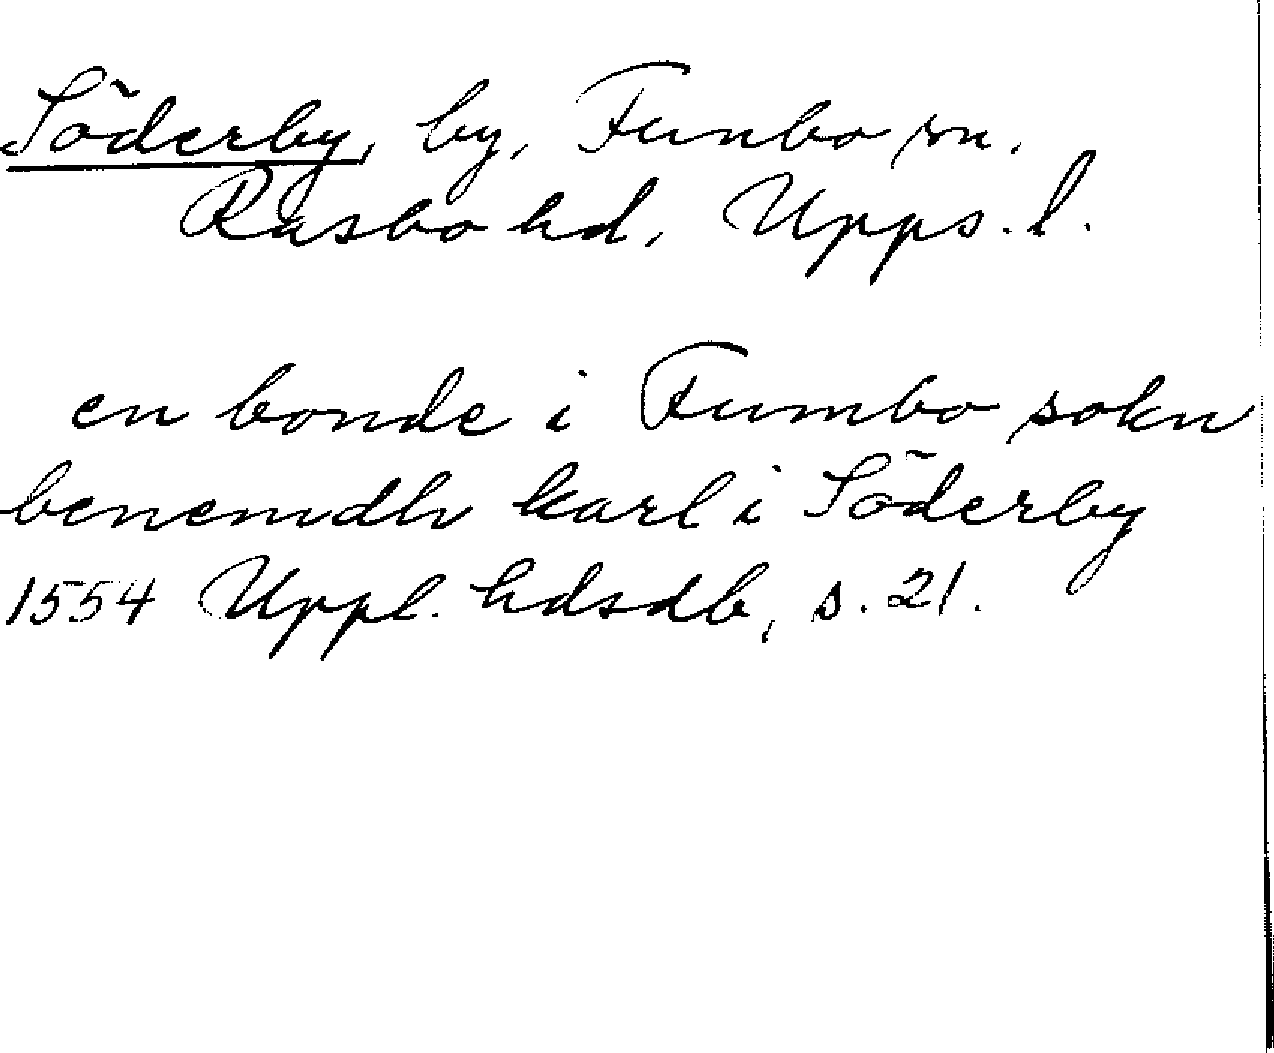 Söderby, by, Funbo sn.
Rasbo hd, Upps. l.
en bonde i Fumbo sokn
benemdh karl i Söderby
1554 Uppl. hdsdb, s. 21.